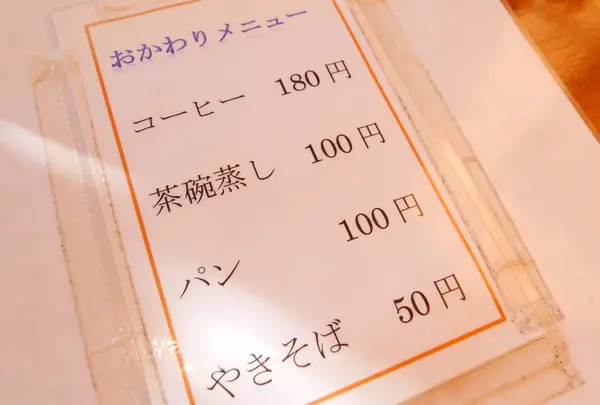 おかわりメニュー
コーヒー 180円
茶碗蒸し 100円
パン 100円
やきそば 50円